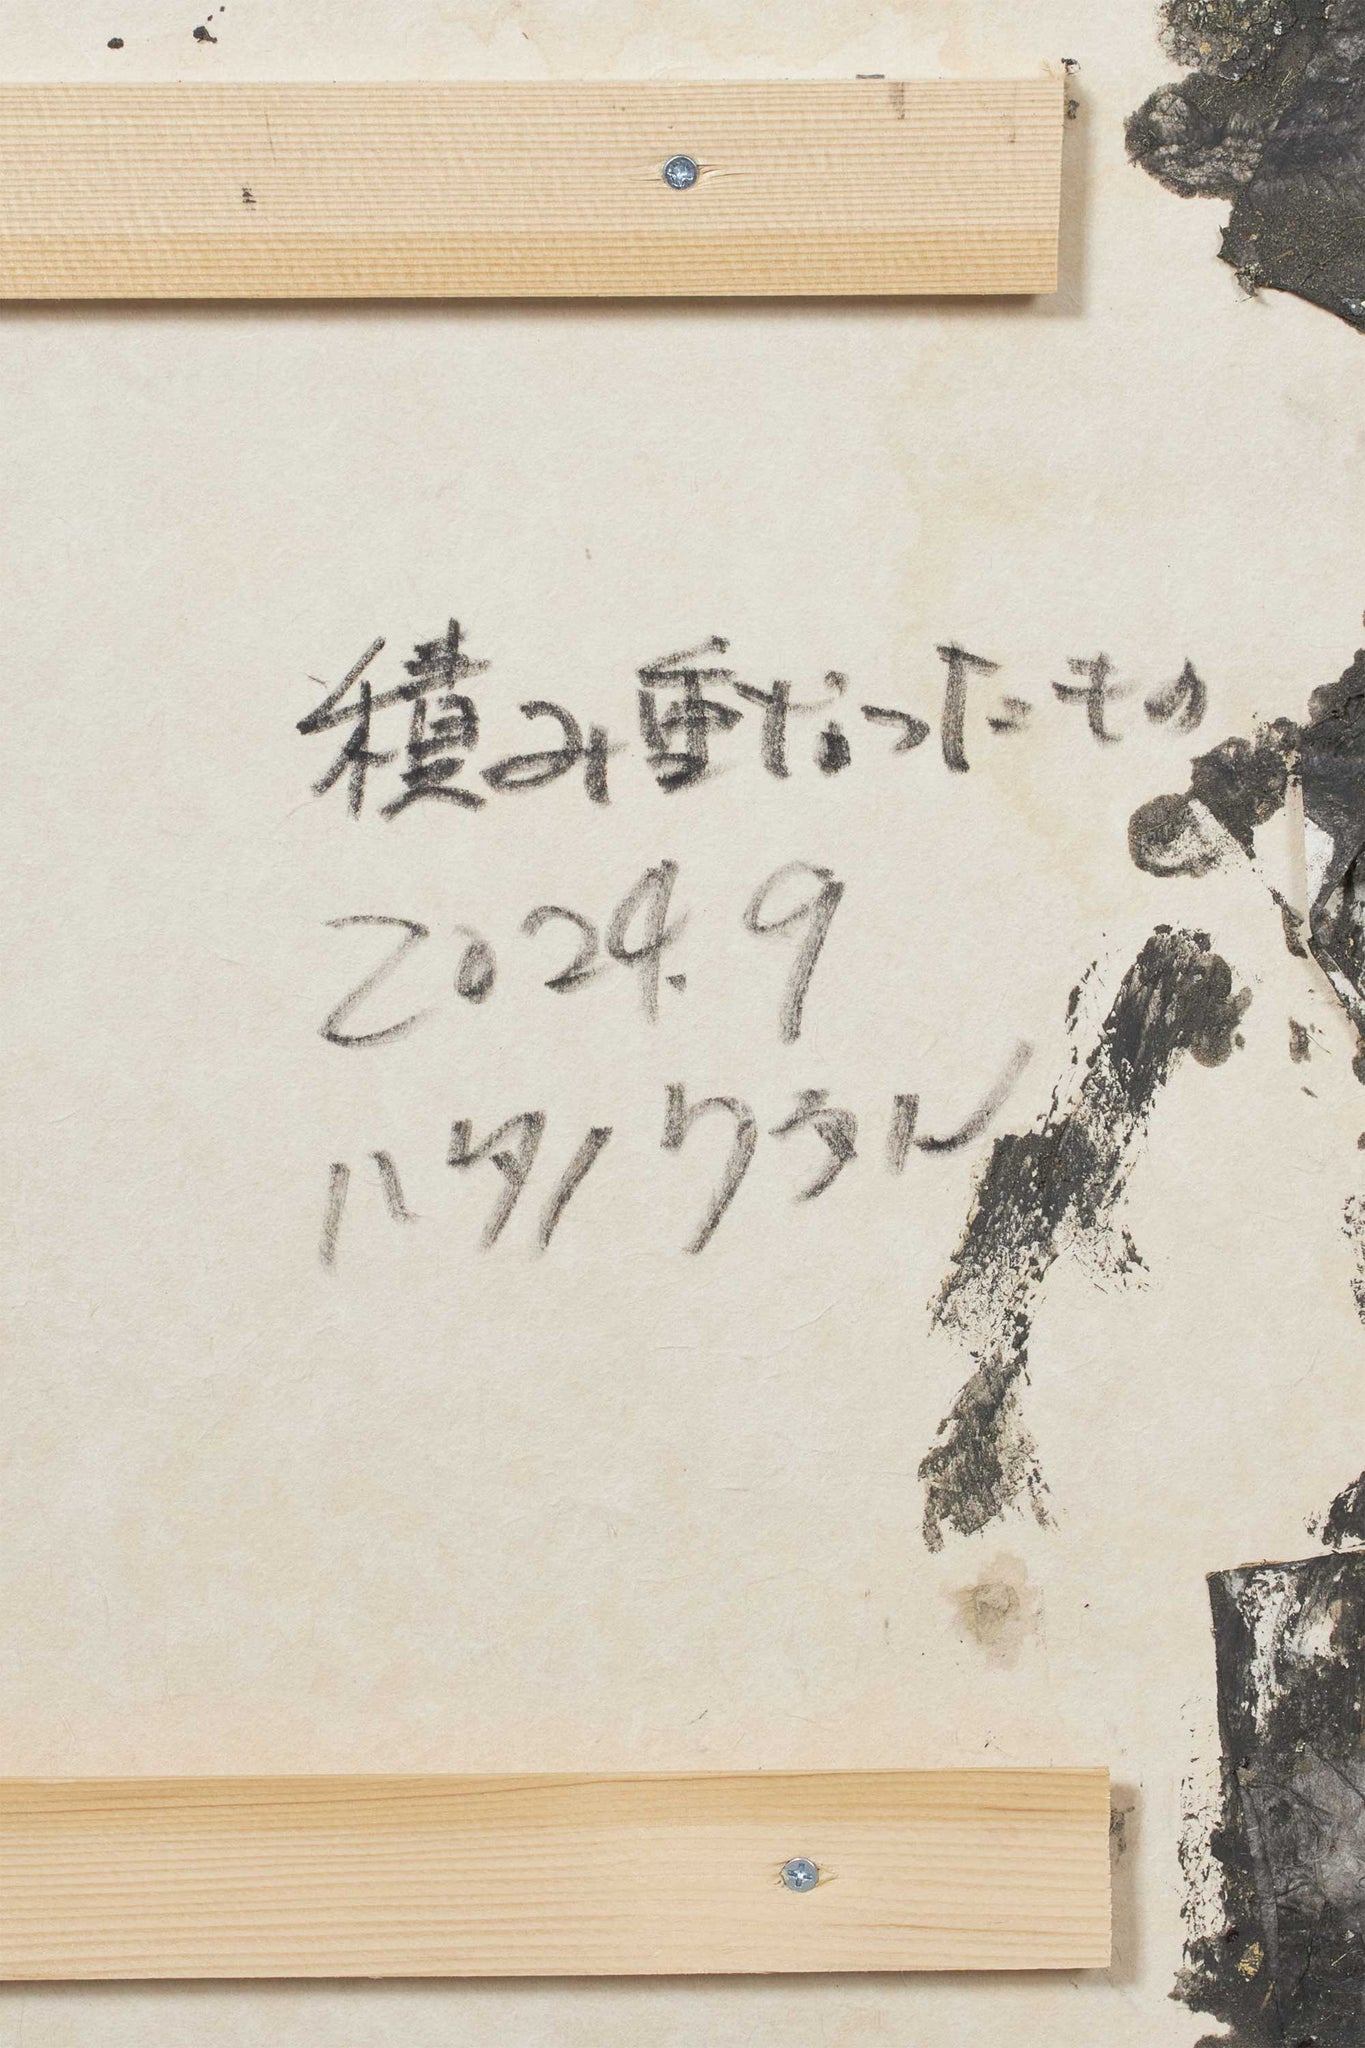 積み重なったもの
2024.9
ハタノワタル